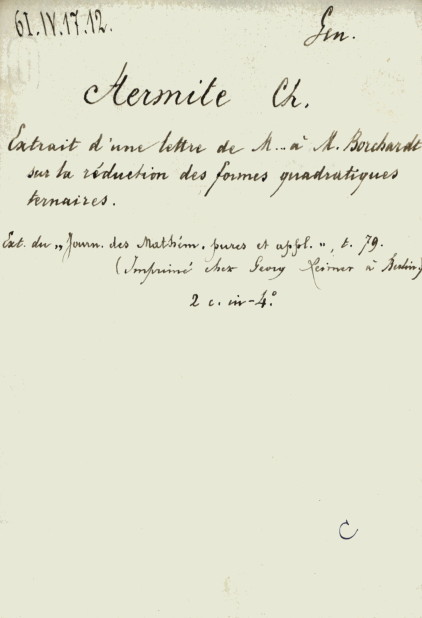 61.IV.17.12.
Gen.
Hermite Ch.
Extrait d'une lettre de M... à M. Borchardt
sur la réduction des formes quadratiques
ternaires.
Ext. du „Journ. des Mathém. pures et appl.", t. 79.
(Imprimé chez Georg Reimer à Berlin)
2 c. in-4°
C